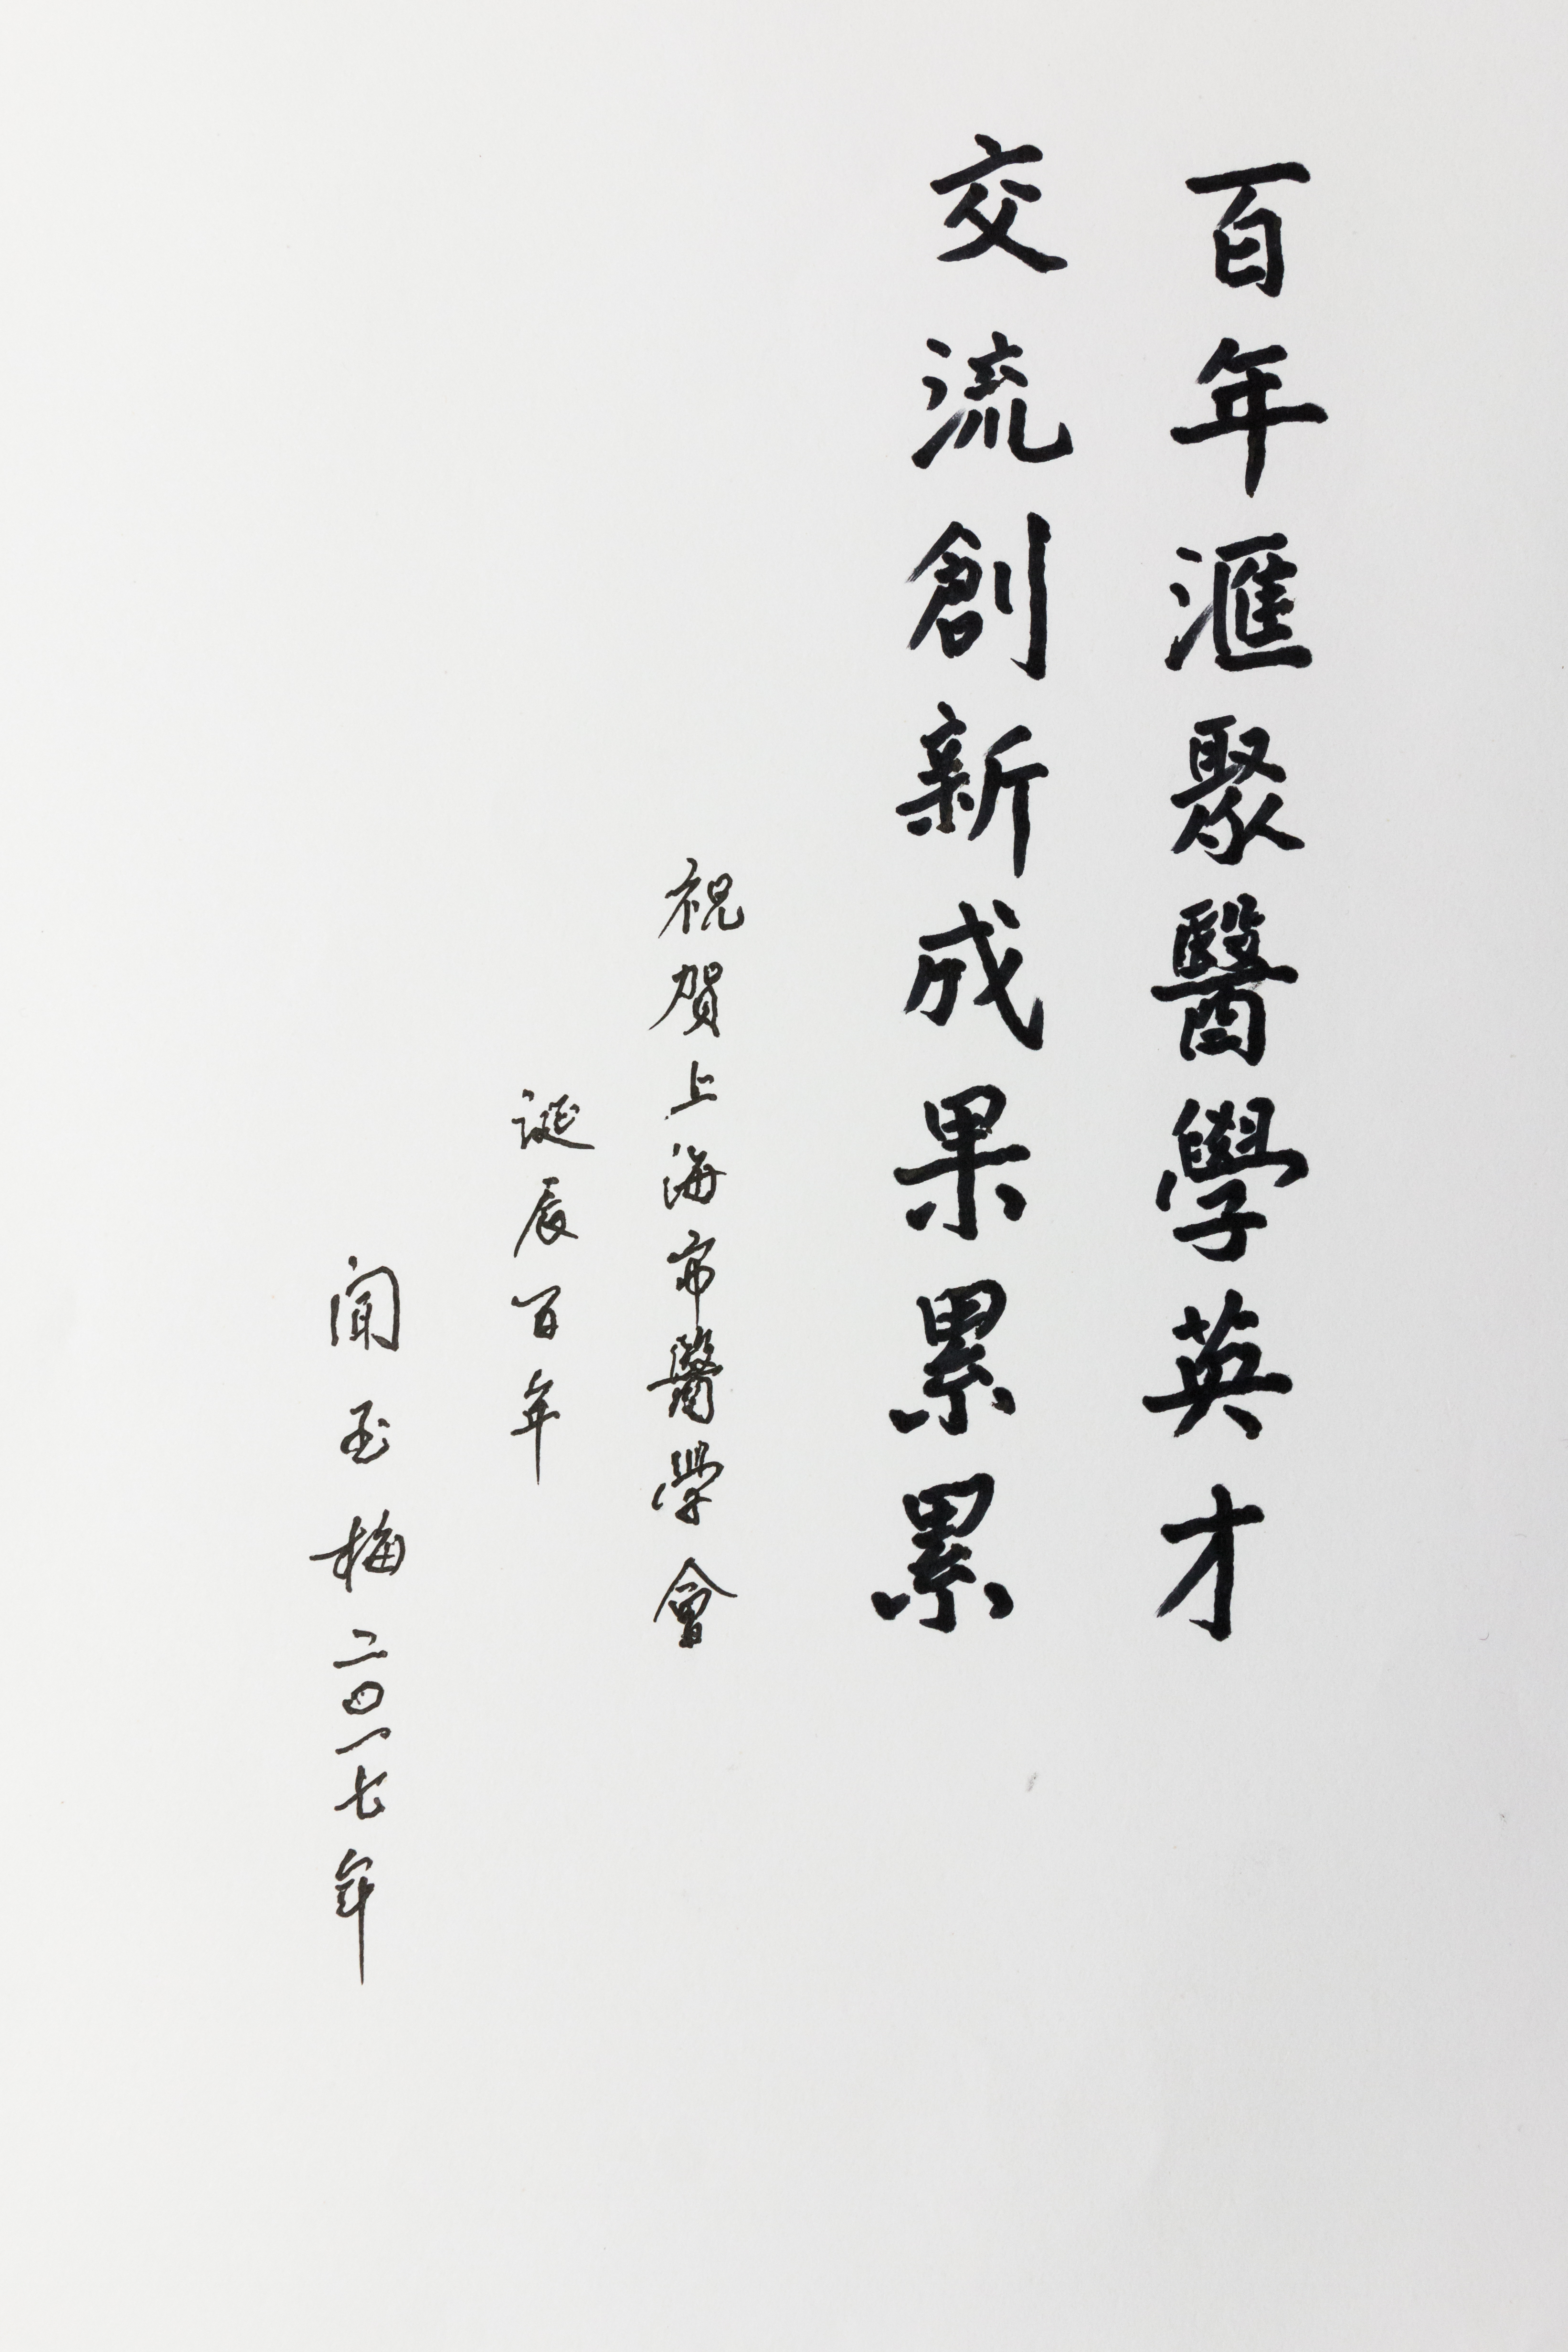 百年滙聚醫學英才
交流創新成果累累
祝賀上海市醫學會
誕辰百年
闻玉梅二〇一七年